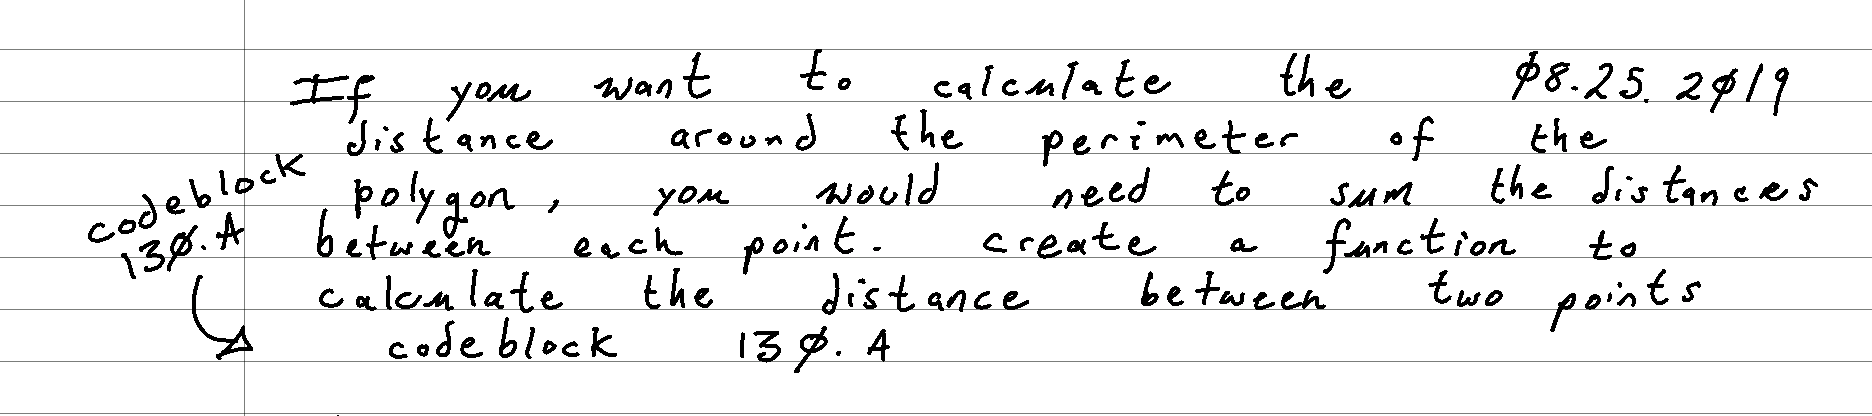 If you want to calculate the 08.25.2019
distance around the perimeter of the
polygon, you would need to sum the distances
between each point. create a function to
calculate the distance between two points
codeblock 130.A
codeblock
130.A